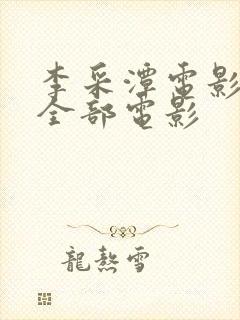 李采潭電影
全部電影
龍熱雪